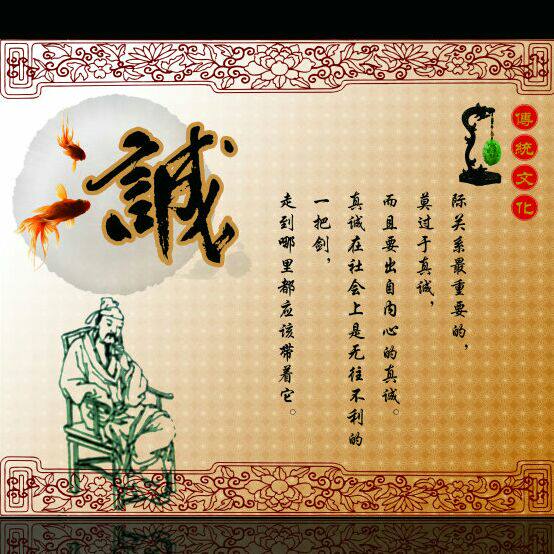 傳統文化
誠
际关系最重要的，
莫过于真诚，
而且要出自内心的真诚。
真诚在社会上是无往不利的
一把剑，
走到哪里都应该带着它。